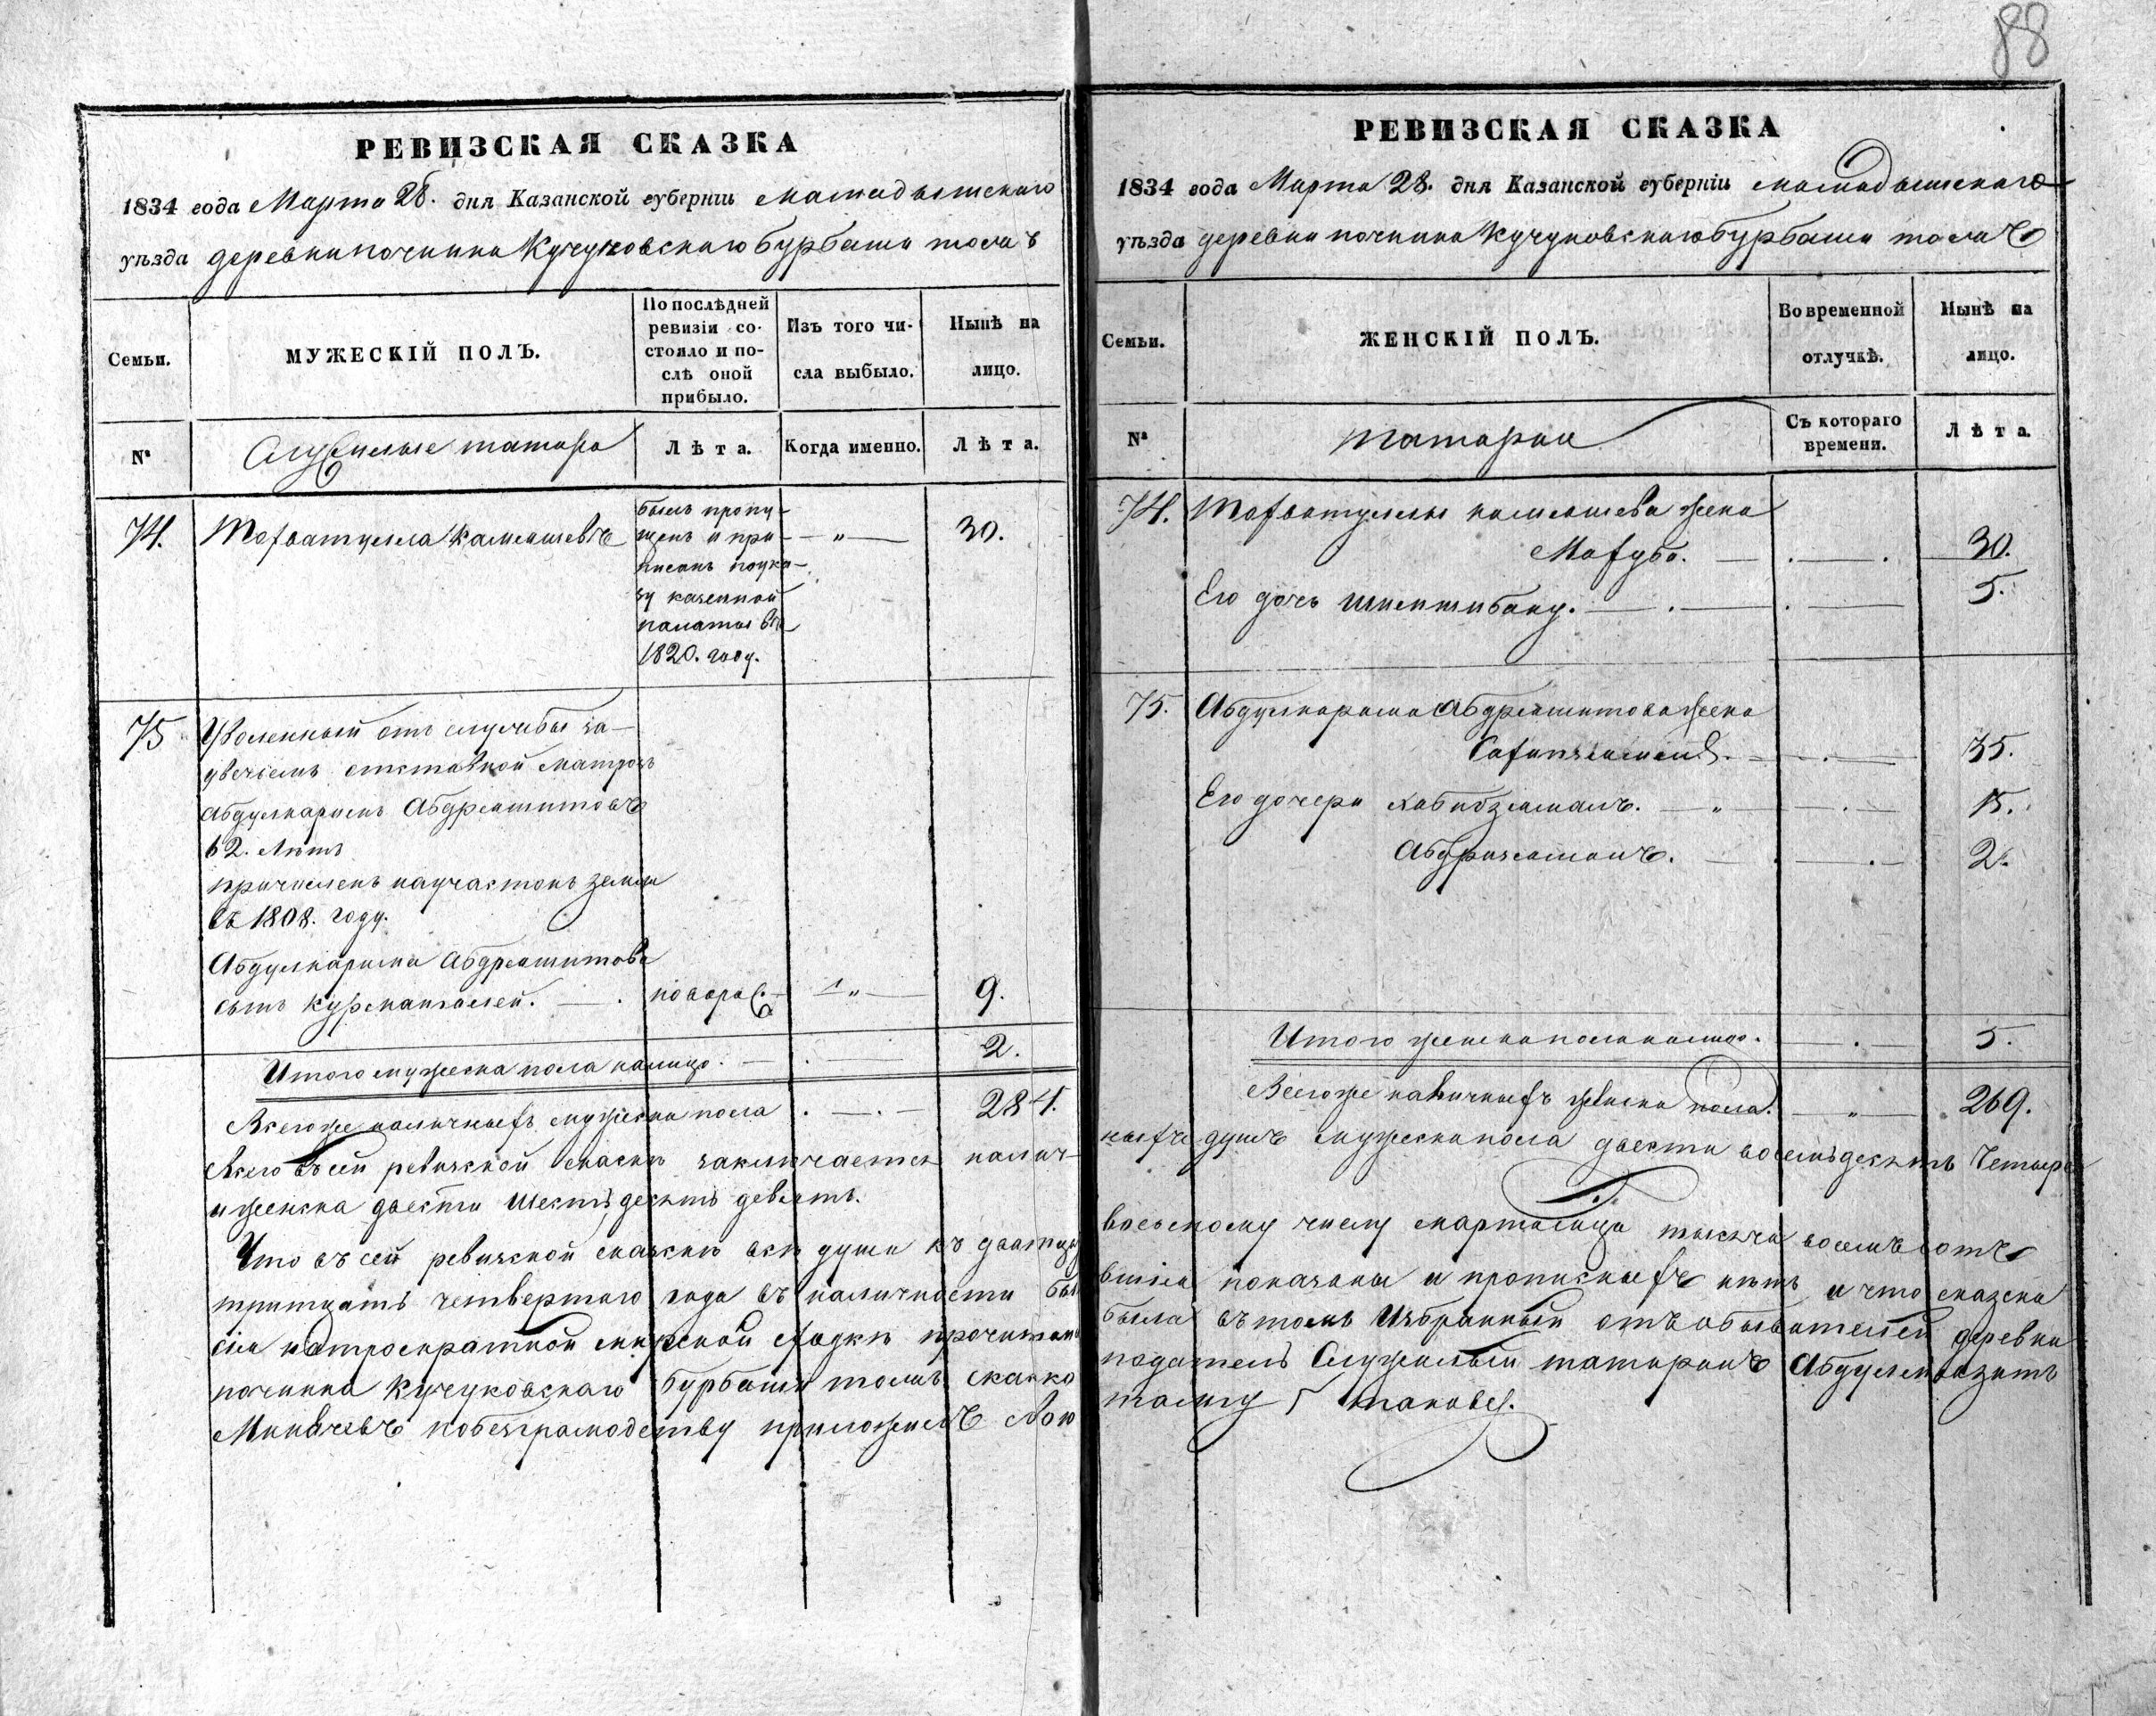 188
РЕВИЗСКАЯ СКАЗКА
1834 года Марта 28. дня Казанской губерніи Мамадышскаго
уѣзда деревни починка Кучуковскаго Бурбаши тожъ
Семьи.
МУЖЕСКІЙ ПОЛЪ.
По послѣдней ревизіи состояло и послѣ оной прибыло.
Изъ того числа выбыло.
Нынѣ на лицо.
№
Служилые татара
Лѣта.
Когда именно.
Лѣта.
74.
былъ пропу-
щенъ и при-
писанъ по ука-
зу казенной
палаты въ
1820. году.
30.
75
Уволенный отъ службы за
увечьемъ отставной матрозъ
Абдулкаримъ Абдрашитовъ
62. лѣтъ
причисленъ на участокъ земли
въ 1808. году.
Абдулкарима Абдрашитова
сынъ Курмангалей.
новорож.
9.
Итого мужеска пола налицо.
2.
Всего же наличныхъ мужеска пола
284.
Всего въ сей ревизской сказкѣ заключается налич-
и женска двести шестьдесятъ девять.
Что въ сей ревизской сказкѣ всѣ души къ двадцать
тритцать четвертого года въ наличности бы
сія на троекратной мирской сходкѣ прочитана
починка Кучуковскаго Бурбаши тожъ сказко
Минвачевъ по безграмодству приложилъ свою
РЕВИЗСКАЯ СКАЗКА
1834 года Марта 28. дня Казанской губерніи Мамадышскаго
уѣзда деревни починка Кучуковскаго Бурбаши тожъ
Семьи.
ЖЕНСКІЙ ПОЛЪ.
Во временной отлучкѣ.
Нынѣ на лицо.
№
татарки
Съ котораго времени.
Лѣта.
74.
жена
Махуба.
30.
Его дочь Шамшибану.
5.
75.
Абдулкарима Абдрашитова жена
35.
Его дочери
15.
2.
Итого женска пола налицо.
5.
Всего же наличныхъ женска пола.
269.
ныхъ душъ мужеска пола двести восемьдесятъ четыре
восьмому числу марта месяца тысяча восемь сотъ
вшіи показаны и прописныхъ нѣтъ и что сказска
была въ томъ избранный отъ обывателей деревни
податель Служилый татаринъ
тамгу таковую.